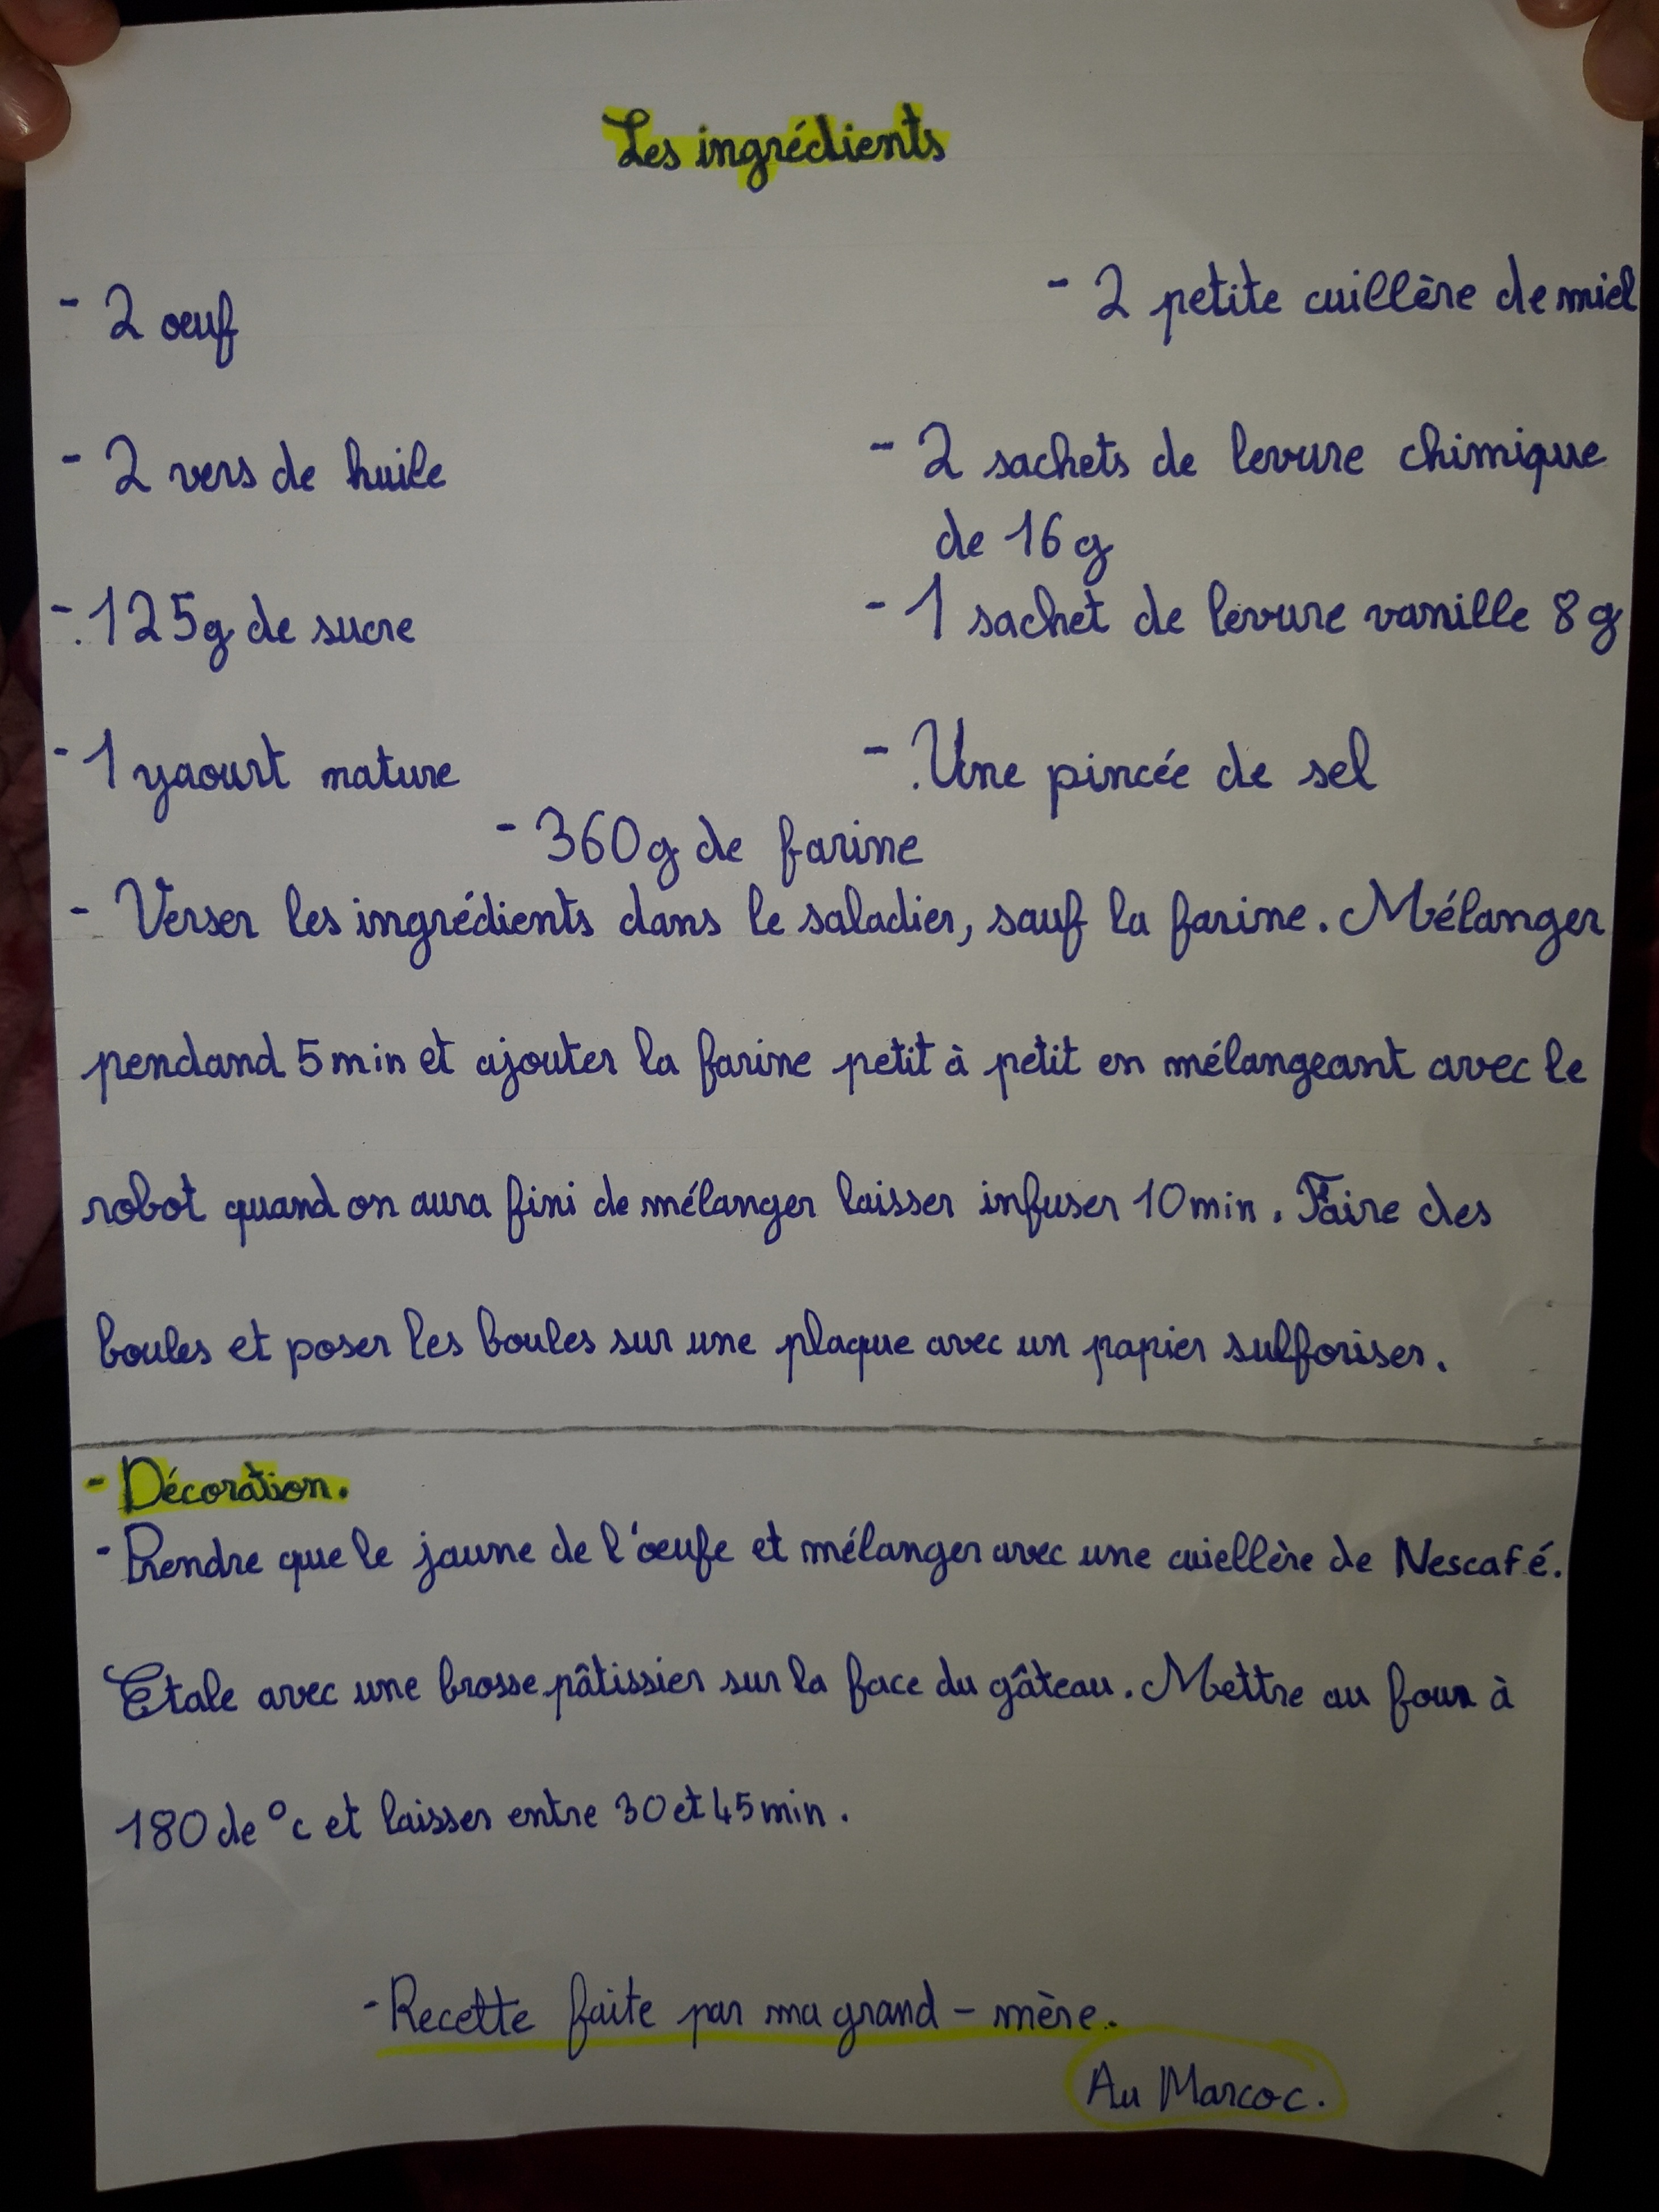 Les ingrédients
- 2 œuf
- 2 petite cuillère de miel
- 2 vers de huile
- 2 sachets de levure chimique
de 16 g
- 125g de sucre
- 1 sachet de levure vanille 8 g
- 1 yaourt nature
- Une pincée de sel
- 360g de farine
- Verser les ingrédients dans le saladier, sauf la farine. Mélanger
pendand 5 min et ajouter la farine petit à petit en mélangeant avec le
robot quand on aura fini de mélanger laisser infuser 10 min. Faire des
boules et poser les boules sur une plaque avec un papier sulforiser.
- Décoration.
- Prendre que le jaune de l'œufe et mélanger avec une cuiellère de Nescafé.
Etale avec une brosse pâtissier sur la face du gâteau. Mettre au four à
180 de °c et laisser entre 30 et 45 min.
- Recette faite par ma grand - mère.
Au Marcoc.